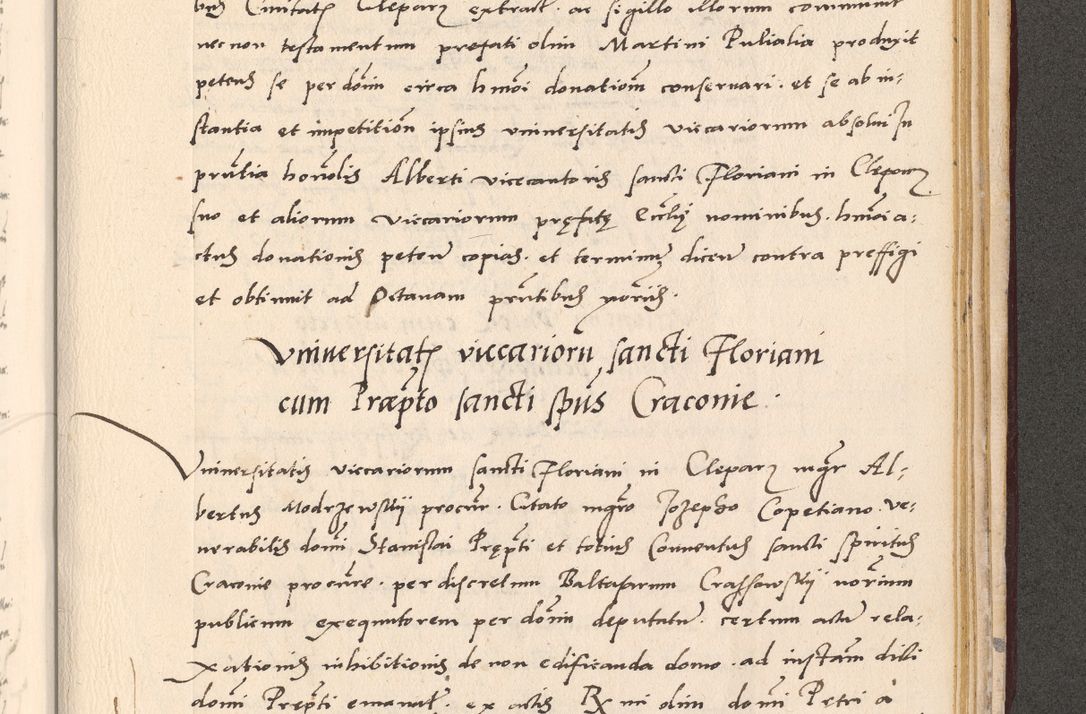 Civitatis Cleparz extract. ac sigillo illorum communit
necnon testamentum prefati olim Martini Pulialia produxit
petens se per dom̄m circa hmōi donatiom̄ conservari. et se ab in-
stantia et impetitiōn ipsius universitatis viccariorum absolvi In
pn̄tia honōlis Alberti vicecantoris sancti Floriani in Cleparz
suo et aliorum viccariorum prefatę Ecclię nominibus. hmōi a-
ctus donationis peten̄ copias. et terminum dicen̄ contra preffigi
et obtinuit ad Octavam pn̄tibus
Universitatis viccarioru sancti Floriani
cum Præpto sancti spūs Craconie.
Universitatis viccariorum sancti Floriani in Cleparz mgr Al-
bertus Modrzewskij procur. Citato mgro Jozepho Copetiano. ve-
nerabilis domī Stanislai Prępti et totius Conventus sancti spiritus
Craconie procūre. per discretum Baltasarum Crassowskij norium
publicum exequutorem per dom̄m deputatum. certum actum rela-
xationis inhibitionis de non edificanda domo. ad instam̄ dicti
domī Prepti emanat. ex actis Rmi olim domī Petri a